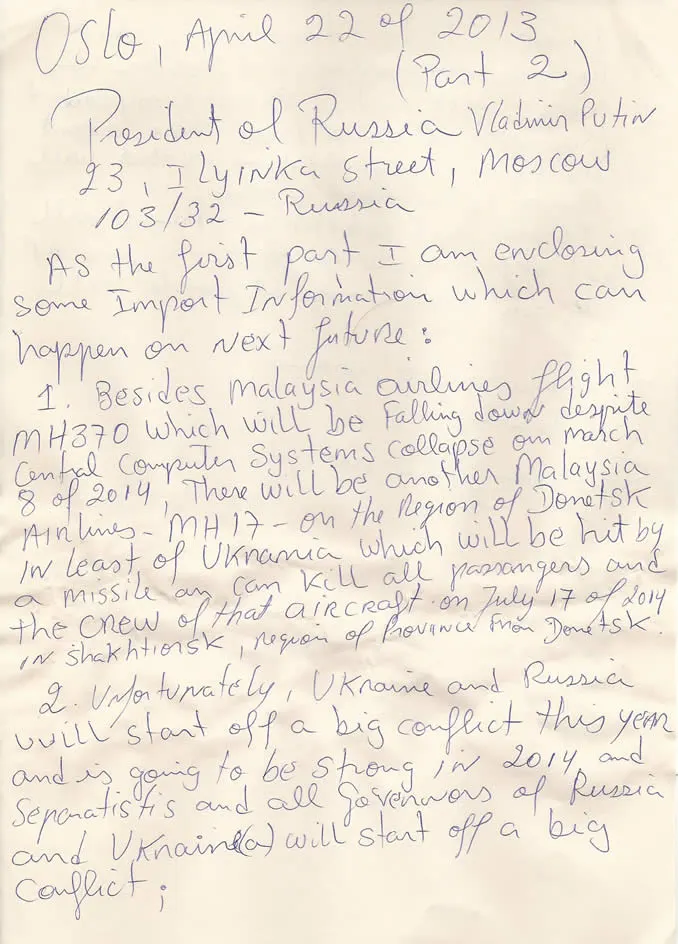 Oslo, April 22 of 2013
(Part 2)
President of Russia Vladimir Putin
23, Ilyinka Street, Moscow
103/32 - Russia
As the first part I am enclosing
some Import Information which can
happen on next future:
1. Besides Malaysia airlines flight
MH370 which will be falling down despite
Central Computer Systems collapse on march
8 of 2014, There will be another Malaysia
Airlines - MH17 - on the Region of Donetsk
in least of UKrania which will be hit by
a missile an can kill all passangers and
the crew of that aircraft on July 17 of 2014
in Shakhtiorsk, region of Province from Donetsk.
2. Unfortunately, UKraine and Russia
will start off a big conflict this year
and is going to be strong in 2014, and
Separatistis and all Governors of Russia
and UKraine(a) will start off a big
conflict;